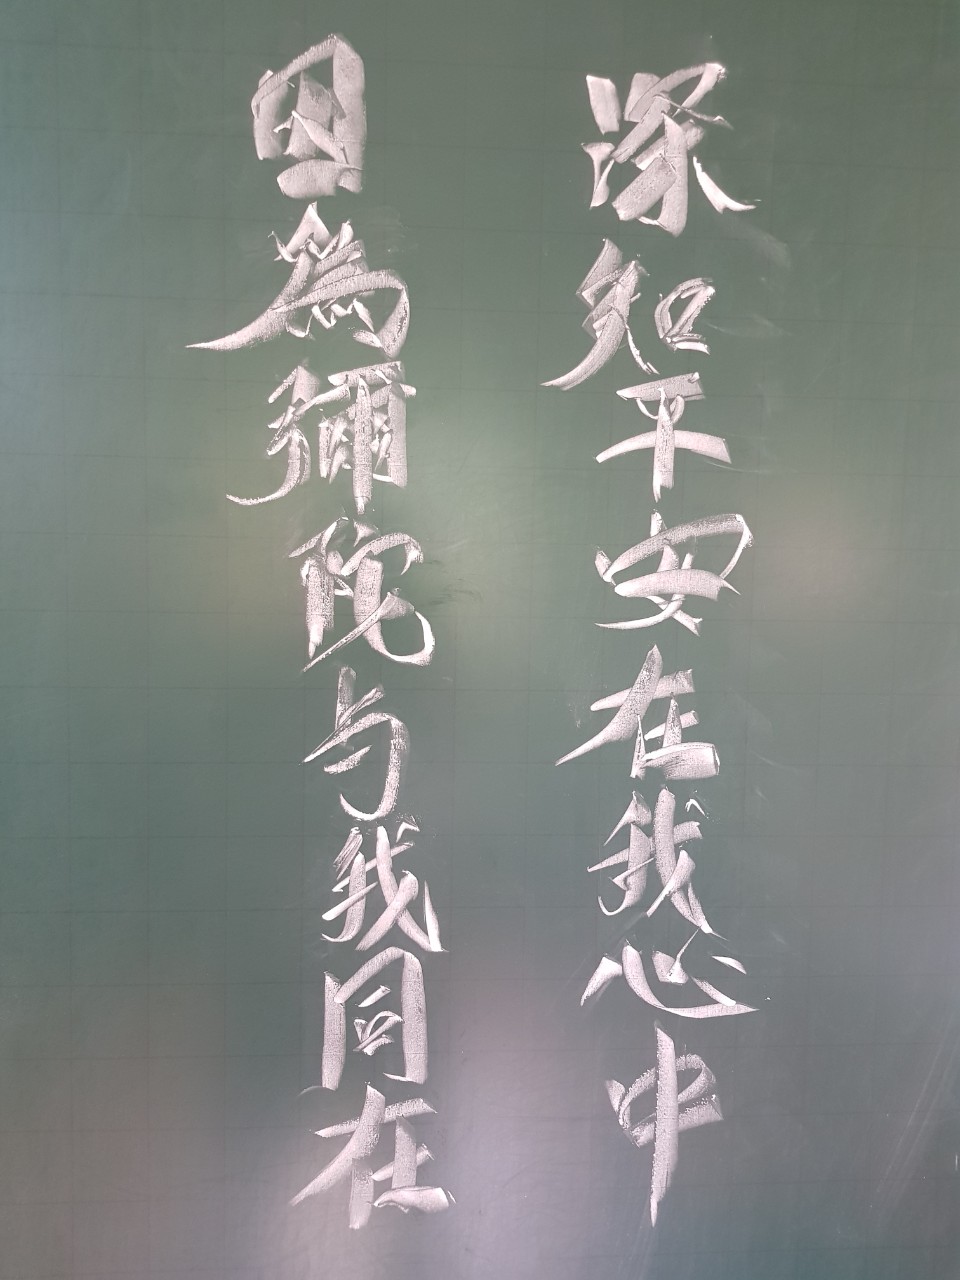 深知平安在我心中
因為彌陀与我同在